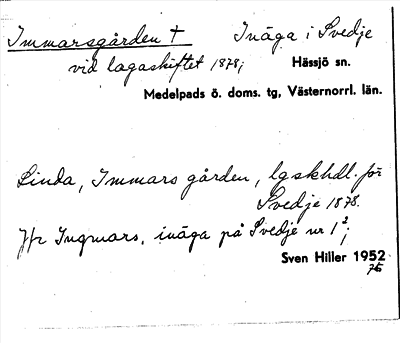 Immarsgården † Inäga i Svedje
vid lagaskiftet 1878; Hässjö sn.
Medelpads ö. doms. tg, Västernorrl. län.
Linda, Immars gården, lgskhdl. för
Svedje 1878.
Jfr Ingmars, inäga på Svedje nr 1²;
Sven Hiller 1952
75